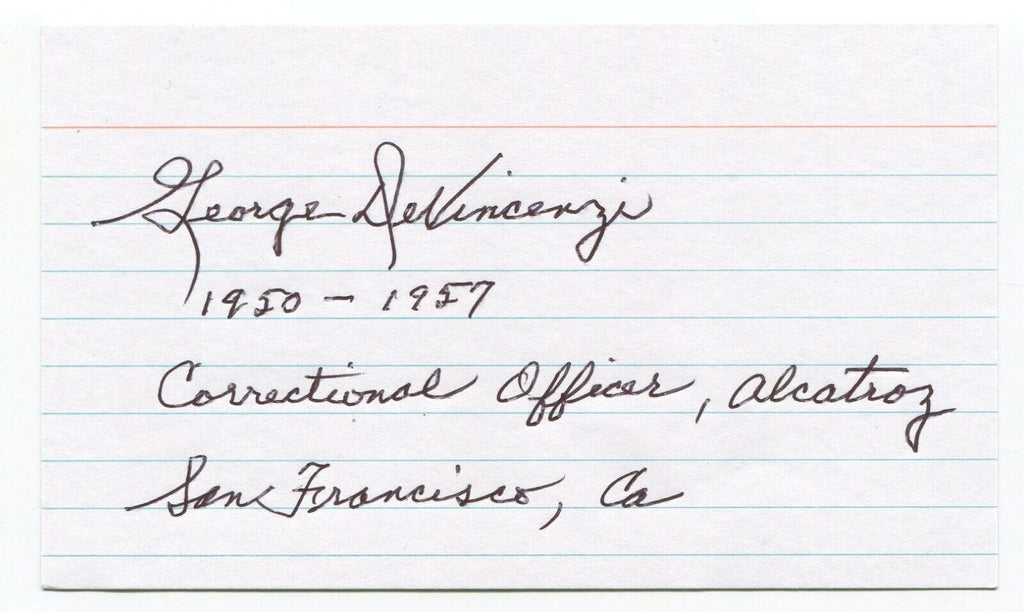 George DeVincenzi
1950 - 1957
Correctional Officer, Alcatraz
San Francisco, Ca